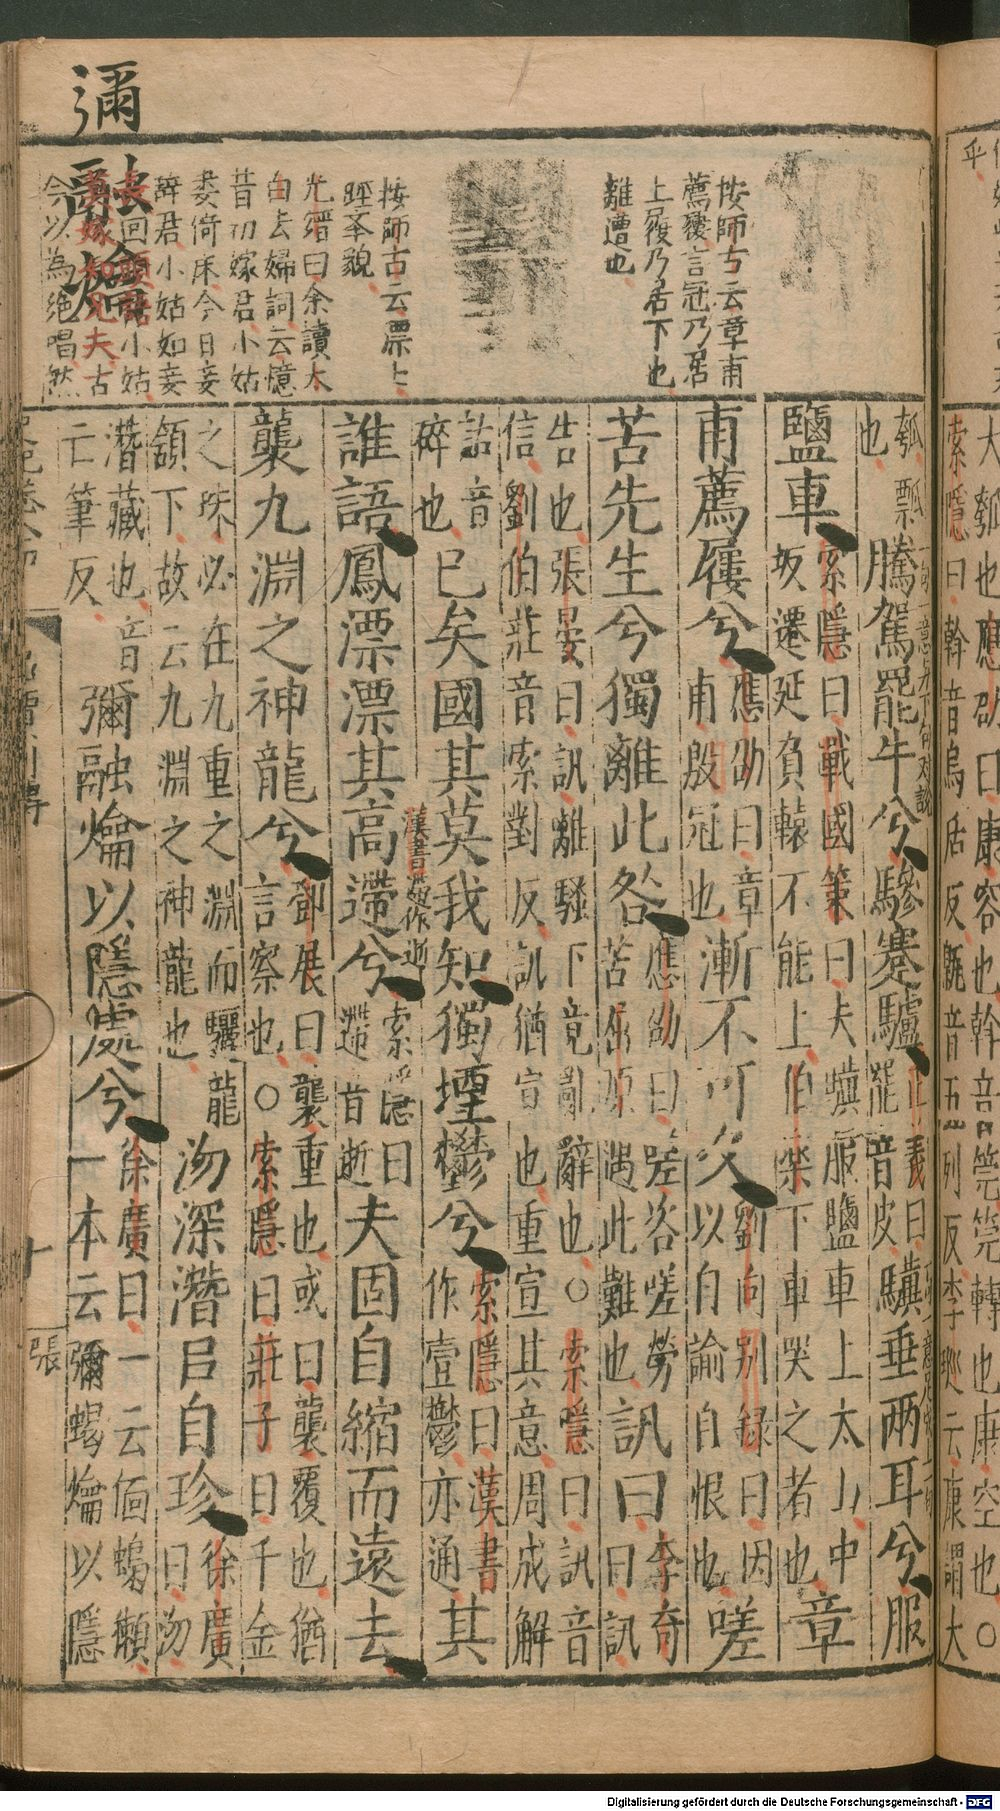 彌
融
爚
按師古云章甫
薦屨言冠乃居
上履乃居下也
離遭也
按師古云漂上
輕𠦑貌
光縉曰余讀太
白去婦詞云憶
昔初嫁君小姑
纔倚床今日妾
辭君小姑如妾
長回頭語小姑
莫嫁如兄夫古
今以為絕唱然
瓠瓢
也
騰駕罷牛兮驂蹇驢
正義曰
罷音皮
驥垂兩耳兮服
鹽車
索隱曰戰國策曰夫驥服鹽車上太山中
坂遷延負轅不能上伯樂下車哭之者也
章
甫薦屨兮
應劭曰章
甫殷冠也
漸不可久
劉向別錄曰因
以自諭自恨也
嗟
苦先生兮獨離此咎
應劭曰嗟咨嗟勞
苦屈原遇此難也
訊曰
李奇
曰訊
告也張晏曰訊離騷下竟亂辭也○索隱曰訊音
信劉伯莊音索對反訊猶宣也重宣其意周成解
詁音
碎也
已矣國其莫我知獨堙鬱兮
索隱曰漢書
作壹鬱亦通
其
誰語鳳漂漂其高遰兮
漢書遰作逝
索隱曰
遰音逝
夫固自縮而遠去
襲九淵之神龍兮
鄧展曰襲重也或曰襲覆也猶
言察也○索隱曰莊子曰千金
之珠必在九重之淵而驪龍
頷下故云九淵之神龍也
沕深潛㠯自珍
徐廣
曰沕
潛藏也音
亡筆反
彌融爚以隱處兮
徐廣曰一云偭蟂獺
一本云彌蝎爚以隱
十
張
大瓠也應劭曰康容也斡音筦筦轉也康空也○
索隱曰斡音烏活反甈音五列反李巡云康謂大
Digitalisierung gefördert durch die Deutsche Forschungsgemeinschaft - DFG